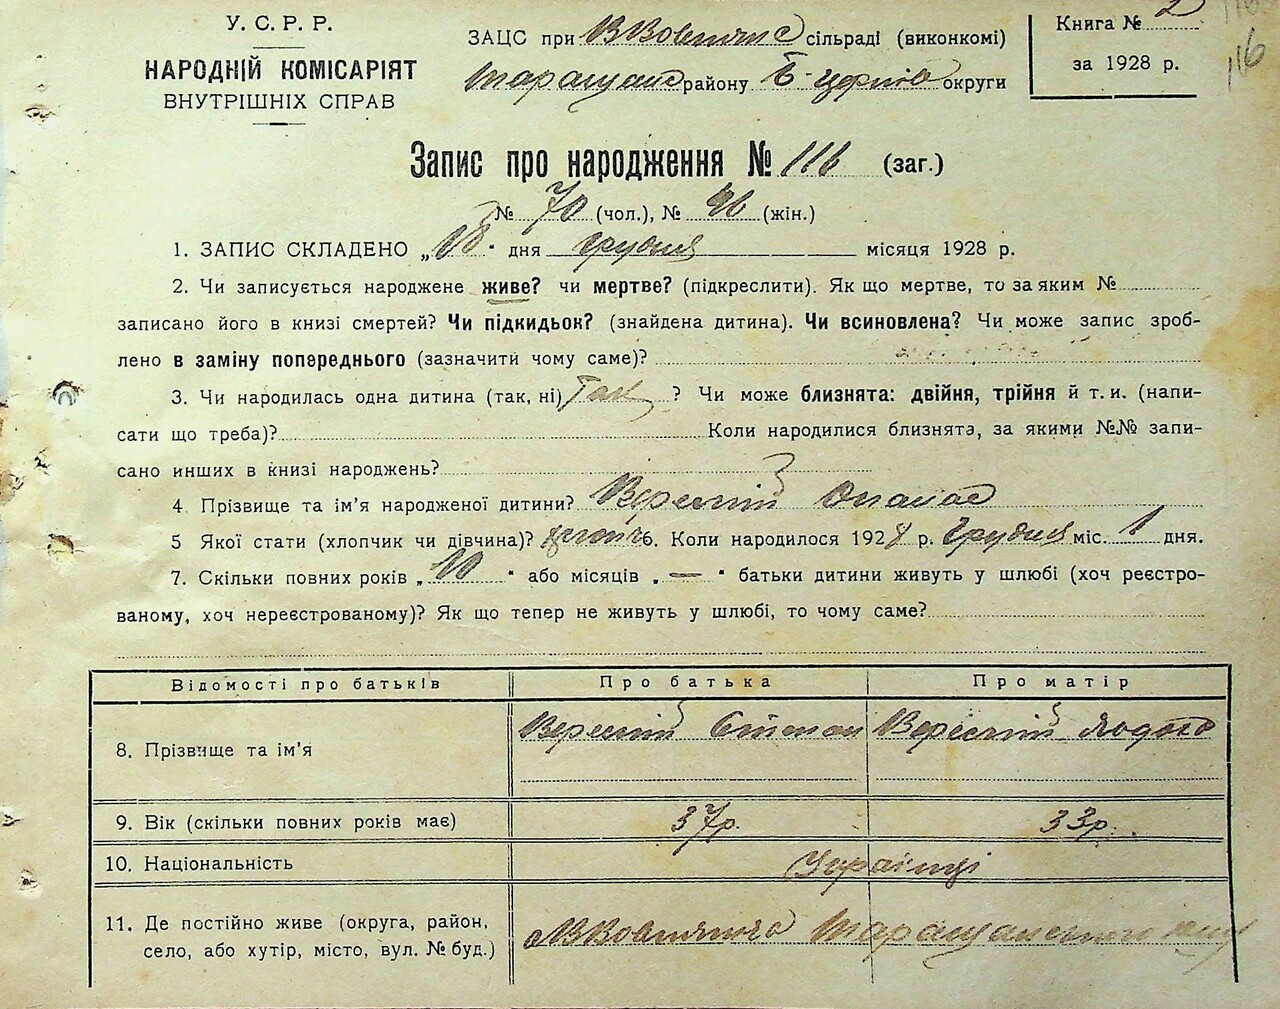 У. С. Р. Р.
НАРОДНІЙ КОМІСАРІЯТ
ВНУТРІШНІХ СПРАВ
ЗАЦС при сільраді (виконкомі)
Таращанс району Б-Церків округи
Книга № 2
за 1928 р.
116
Запис про народження № 116 (заг.)
№ 70 (чол.), № 46 (жін.)
1. ЗАПИС СКЛАДЕНО „ “ дня грудня місяця 1928 р.
2. Чи записується народжене живе? чи мертве? (підкреслити). Як що мертве, то за яким №
записано його в книзі смертей? Чи підкидьок? (знайдена дитина). Чи всиновлена? Чи може запис зроб-
лено в заміну попереднього (зазначити чому саме)?
3. Чи народилась одна дитина (так, ні) Так ? Чи може близнята: двійня, трійня й т. и. (напи-
сати що треба)? Коли народилися близнята, за якими №№ запи-
сано инших в книзі народжень?
4. Прізвище та ім’я народженої дитини? Вересній Опанас
5 Якої стати (хлопчик чи дівчина)? 6. Коли народилося 1928 р. Грудня міс. 1 дня.
7. Скільки повних років „ 10 “ або місяців „ — “ батьки дитини живуть у шлюбі (хоч реєстро-
ваному, хоч нереєстрованому)? Як що тепер не живуть у шлюбі, то чому саме?
Відомості про батьків Про батька Про матір
8. Прізвище та ім’я Вересній Степан Вересній Ягодка
9. Вік (скільки повних років має) 37р. 33р.
10. Національність Українці
11. Де постійно живе (округа, район,
село, або хутір, місто, вул. № буд.) Таращанського